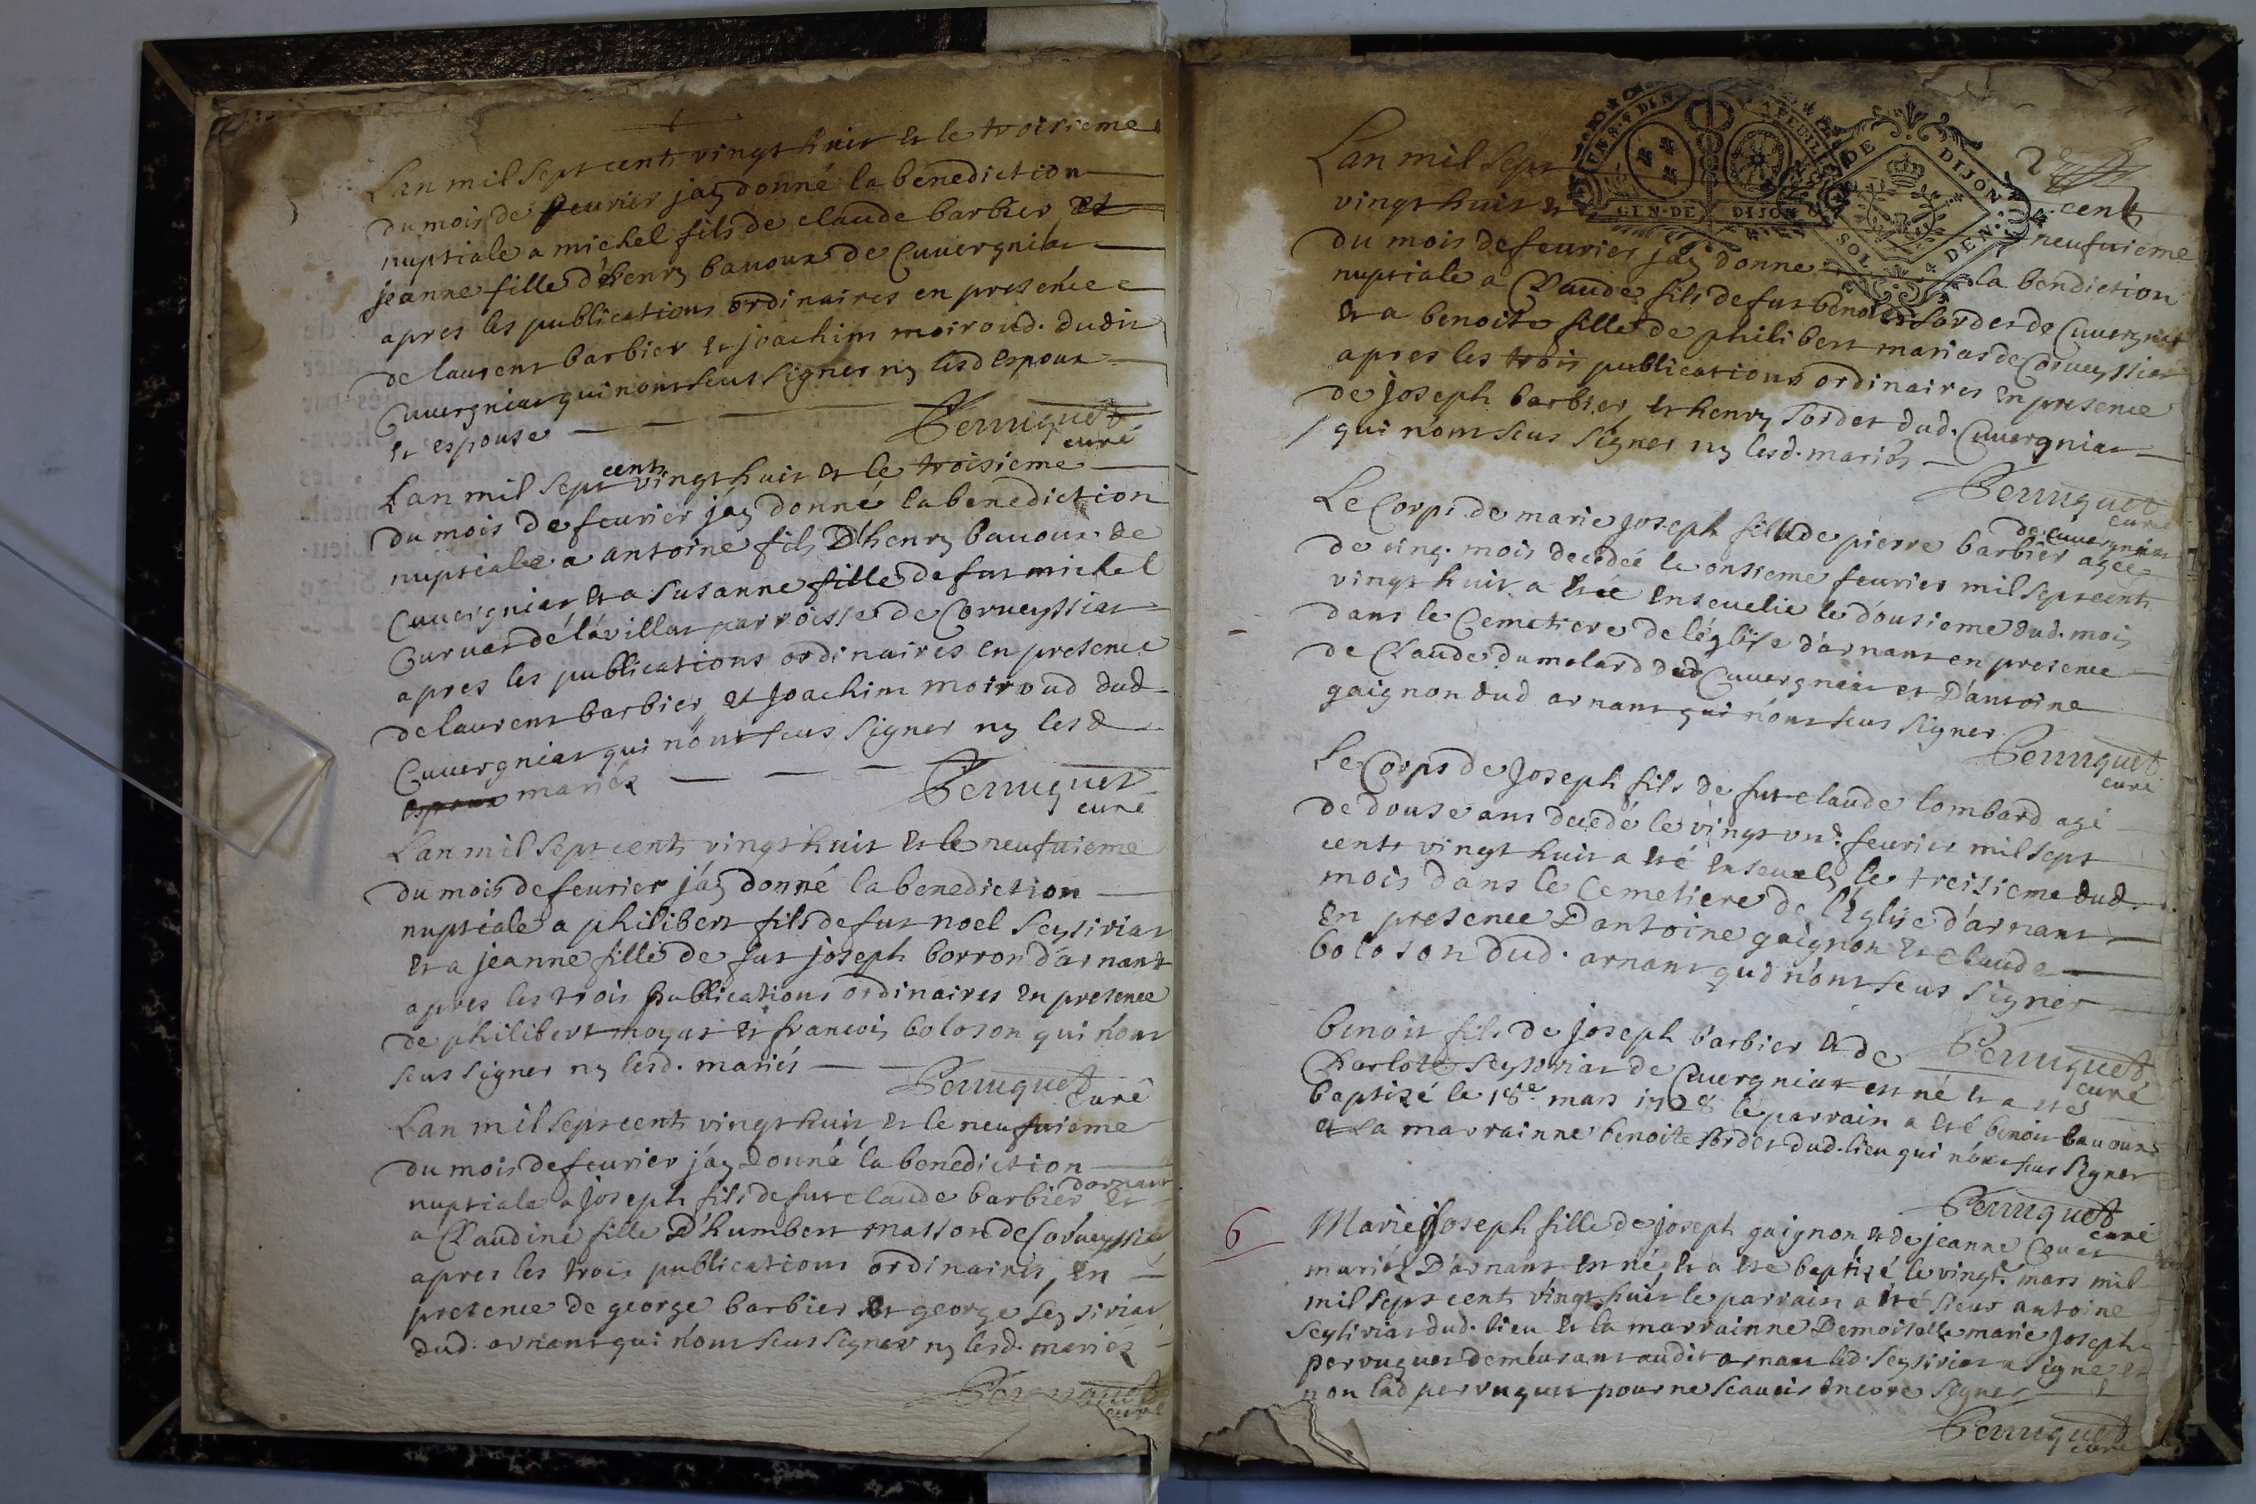 Lan mil sept cents vingt huit et le troisieme
du mois de feurier j'ay donné la benediction
nuptiale a michel fils de claude barbier et
jeanne fille d'henry bauoux de Cuuergniat
apres les publications ordinaires en presence
de laurent barbier et joachim moiroud dudit
Cuuergniat qui n'ont sceus signer ny lesd espoux
et espouse
Perruquet
curé
Lan mil sept cents vingt huit et le troisieme
du mois de feurier j'ay donné la benediction
nuptiale a antoine fils d'henry bauoux de
Cuuergniat et a susanne fille de fut michel
Curuat de la villat parroisse de Corueyssiat
apres les publications ordinaires en presence
de laurent barbier et joachim moiroud dud
Cuuergniat qui n'ont sceus signer ny lesd
espoux mariéz
Perruquet
curé
Lan mil sept cents vingt huit et le neufuieme
du mois de feurier j'ay donné la benediction
nuptiale a philibert fils de fut noel seysiriat
et a jeanne fille de fut joseph borron d'arnant
apres les trois publications ordinaires en presence
de philibert moyat et francois boloson qui n'ont
sceus signer ny lesd. mariés
Perruquet
curé
Lan mil sept cent vingt huit et le neufuieme
du mois de feurier j'ay donné la benediction
nuptiale a joseph fils de fut claude barbier d'arnant et
a Claudine fille d'humbert masson de Corueyssiat
apres les trois publications ordinaires, en
presence de george barbier et george seysiriat
dud. arnant qui n'ont sceus signer ny lesd. mariéz
Perruquet
curé
GEN. DE DIJON
DE DIJON
SOL. 4 DEN.
2
Lan mil sept cents
vingt huit et neufuieme
du mois de feurier j'ay donné la bendiction
nuptiale a Claude fils de fut benoit sordet de Cuuergniat
et a benoite fille de philibert mariat de Corueyssiat
apres les trois publications ordinaires en presence
de joseph barbier et henry sordet dud. Cuuergniat
qui n'ont sceus signer ny lesd. mariés
Perruquet
curé
Le Corps de marie joseph fille de pierre barbier de Cuuergniat agée
de cinq mois decedée le onsieme feurier mil sept cents
vingt huit a été enseuelie le dousieme dud. mois
dans le Cemetiere de léglise d'arnant en presence
de Claude dumolard dud Cuuergniat et d'antoine
gaignon dud arnant qui n'ont sceus signer
Perruquet
curé
Le Corps de joseph fils de fut claude lombard agé
de douse ans decedé le vingt un.e feurier mil sept
cents vingt huit a été enseuely le treisieme dud.
mois dans le cemetiere de l'église d'arnant
en presence d'antoine gaignon et claude
boloson dud. arnant qui n'ont sceus signer
Perruquet
curé
benoit fils de joseph barbier et de
Charlote seysiriat de Cuuergniat est né et a été
baptizé le 18e mars 1728 le parrain a été benoit bauoux
et la marrainne benoite sordet dud. lieu qui n'ont sceus signer
Perruquet
curé
6
Marie joseph fille de joseph gaignon et de jeanne Couet
mariéz d'arnant est née et a été baptizé le vingt mars mil
mil sept cents vingt huit le parrain a été sieur antoine
seysiriat dud. lieu et la marrainne demoiselle marie joseph
perruquet demeurant audit arnant led. seysiriat a signé et
non lad perruquet pour ne scauoir encore signer
Perruquet
curé